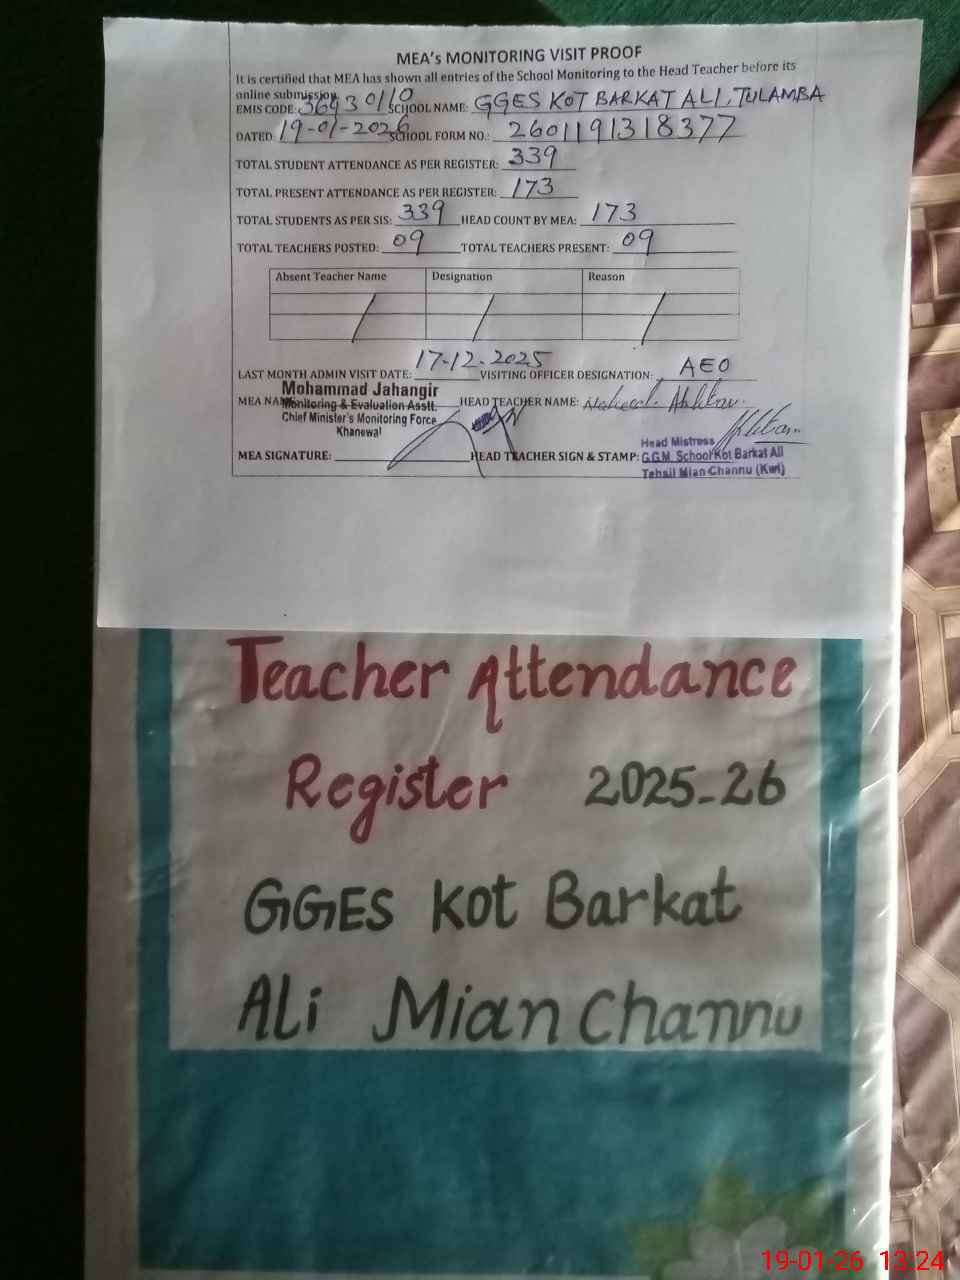 MEA's MONITORING VISIT PROOF
It is certified that MEA has shown all entries of the School Monitoring to the Head Teacher before its
online submission.
EMIS CODE: 36930110 SCHOOL NAME: GGES KOT BARKAT ALI, TULAMBA
DATED 19-01-2026 SCHOOL FORM NO.: 2601191318377
TOTAL STUDENT ATTENDANCE AS PER REGISTER: 339
TOTAL PRESENT ATTENDANCE AS PER REGISTER: 173
TOTAL STUDENTS AS PER SIS: 339 HEAD COUNT BY MEA: 173
TOTAL TEACHERS POSTED: 09 TOTAL TEACHERS PRESENT: 09
Absent Teacher Name Designation Reason
LAST MONTH ADMIN VISIT DATE: 17-12-2025 VISITING OFFICER DESIGNATION: AEO
Mohammad Jahangir
MEA NAME HEAD TEACHER NAME:
Monitoring & Evaluation Asstt.
Chief Minister's Monitoring Force
Khanewal
MEA SIGNATURE: HEAD TEACHER SIGN & STAMP:
Head Mistress
G.G.M. School Kot Barkat Ali
Tehsil Mian Channu (Kwl)
Teacher Attendance
Register 2025-26
GGES Kot Barkat
Ali Mian Channu
19-01-26 13:24